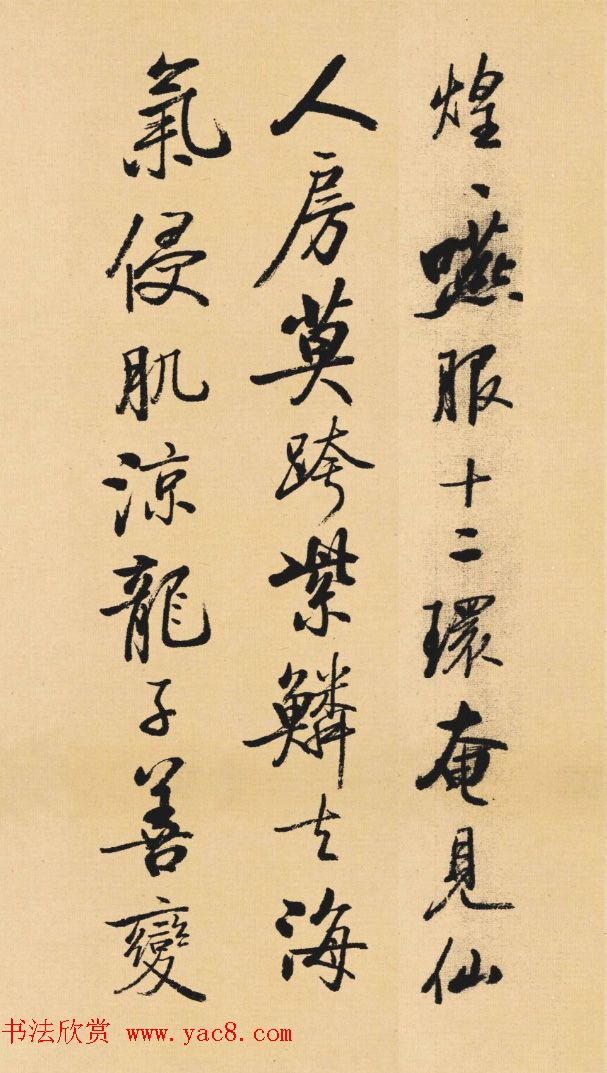 煌々嚥服十二環奄見仙
人房莫跨紫鱗去海
氣侵肌涼龍子善變
书法欣赏 www.yac8.com